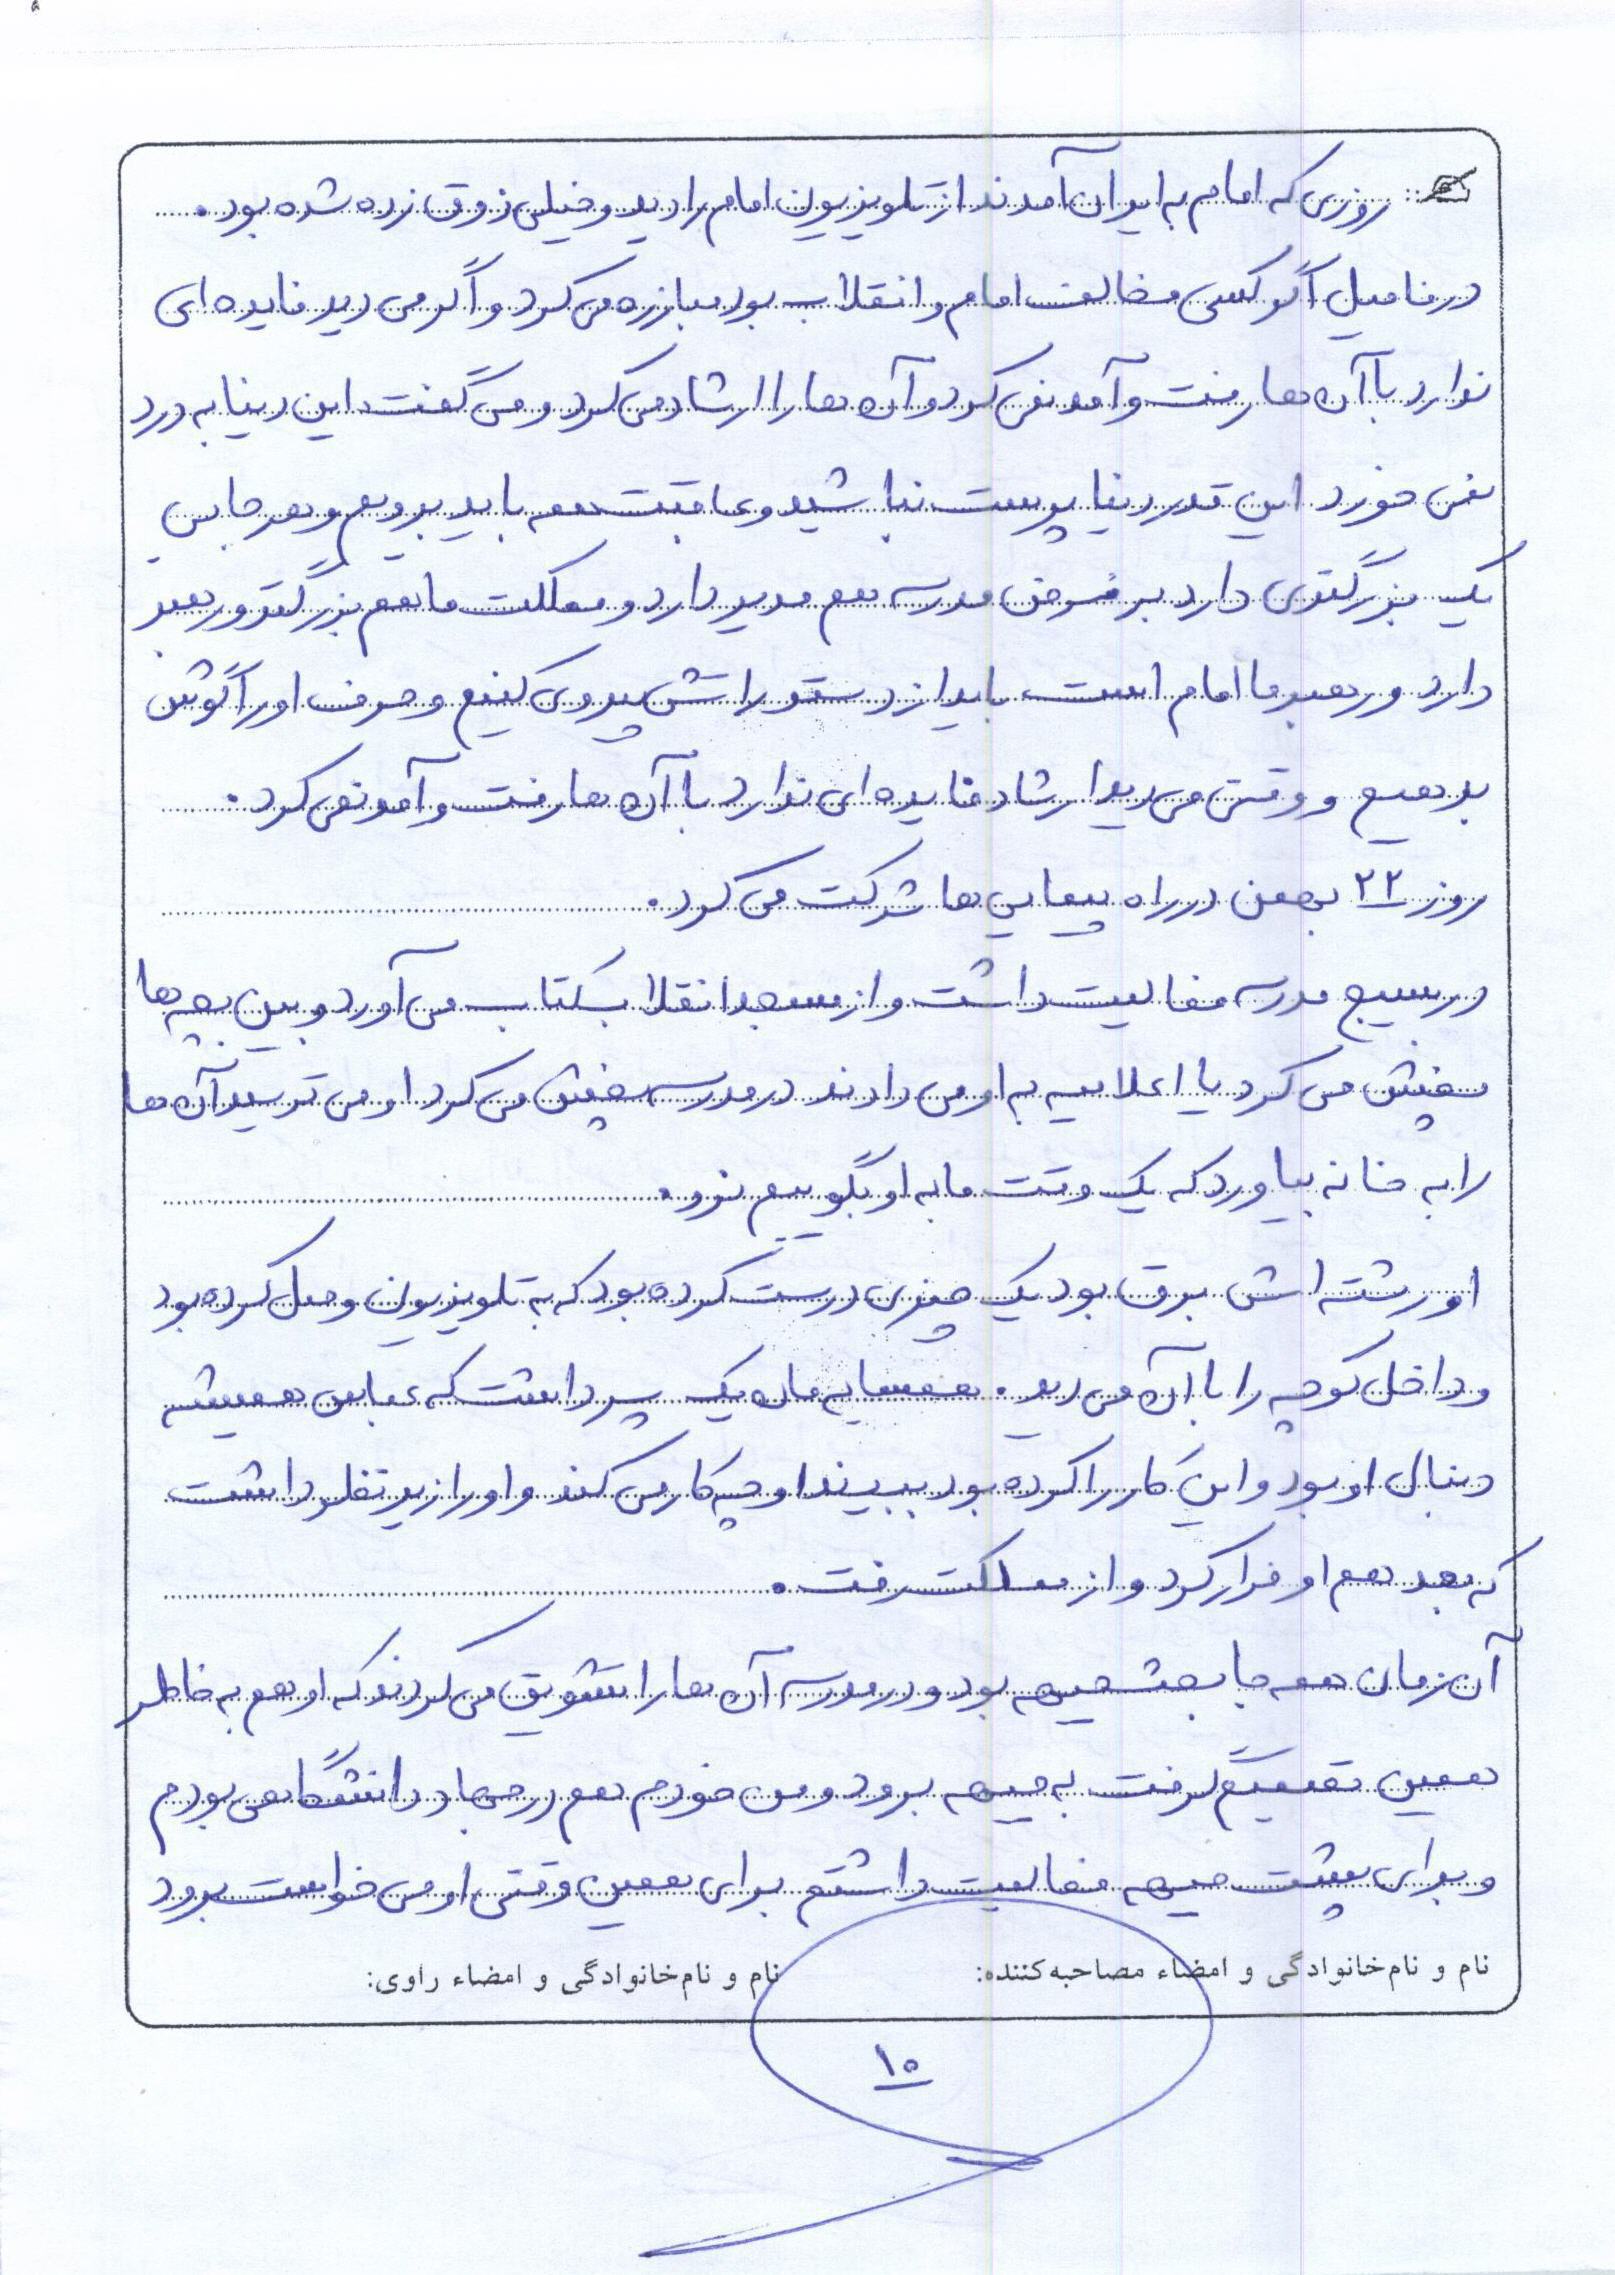 روزی که امام به ایران آمدند از تلویزیون امام را دید و خیلی ذوق زده شده بود.
در فامیل اگر کسی مخالف امام و انقلاب بود مبارزه می کرد و اگر می دید فایده ای
ندارد با آن ها رفت و آمد نمی کرد و آن ها را ارشاد می کرد و می گفت این دنیا به درد
نمی خورد این قدر دنیا پرست نباشید و عاقبت همه باید برویم و هر جایی
یک بزرگتری دارد بر فرض مدرسه هم مدیر دارد و مملکت ما هم بزرگتر و رهبر
دارد و رهبر ما امام است باید از دستوراتش پیروی کنیم و حرف او را گوش
بدهیم و وقتی می دید ارشاد فایده ای ندارد با آن ها رفت و آمد نمی کرد.
روز ۲۲ بهمن در راه پیمایی ها شرکت می کرد.
در بسیج مدرسه فعالیت داشت و از مسجد انقلاب کتاب می آورد و بین بچه ها
پخش می کرد یا اعلامیه به او می دادند در مدرسه پخش می کرد او می ترسید آن ها
را به خانه بیاورد که یک وقت ما به او بگوییم نرو.
او رشته اش برق بود یک چیزی درست کرده بود که به تلویزیون وصل کرده بود
و داخل کوچه را با آن می دید. همسایه مان یک پسر داشت که عباس همیشه
دنبال او بود و این کار را کرده بود ببیند او چه کار می کند و او را زیر نظر داشت
که بعد هم او فرار کرد و از مملکت رفت.
آن زمان همه جا بحث جبهه بود و در مدرسه آن ها را تشویق می کردند که او هم به خاطر
همین تصمیم گرفت به جبهه برود و من خودم هم در جهاد دانشگاهی بودم
و برای پشت جبهه فعالیت داشتم برای همین وقتی او می خواست برود
نام و نام‌خانوادگی و امضاء مصاحبه‌کننده: نام و نام‌خانوادگی و امضاء راوی:
۱۵